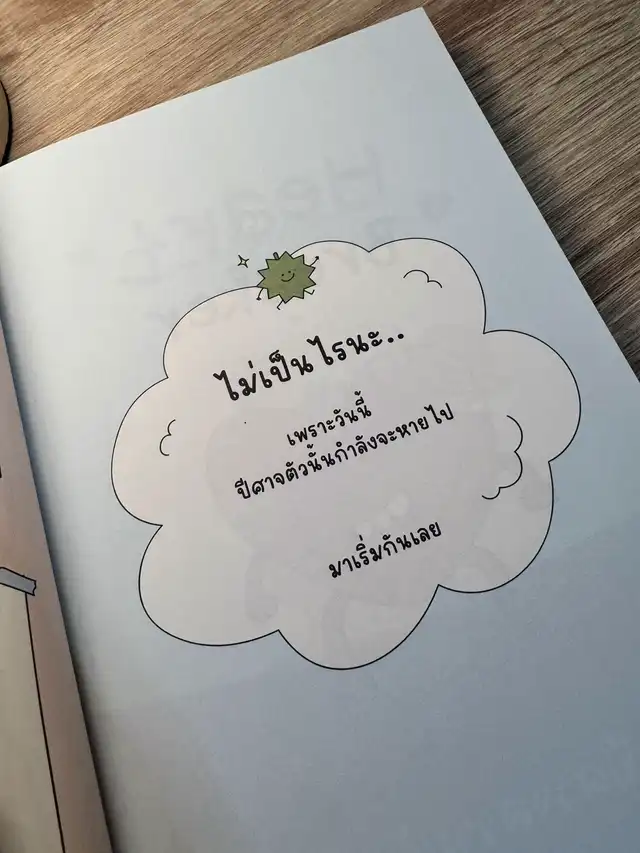 ไม่เป็นไรนะ..
เพราะวันนี้
ปีศาจตัวนั้นกำลังจะหายไป
มาเริ่มกันเลย